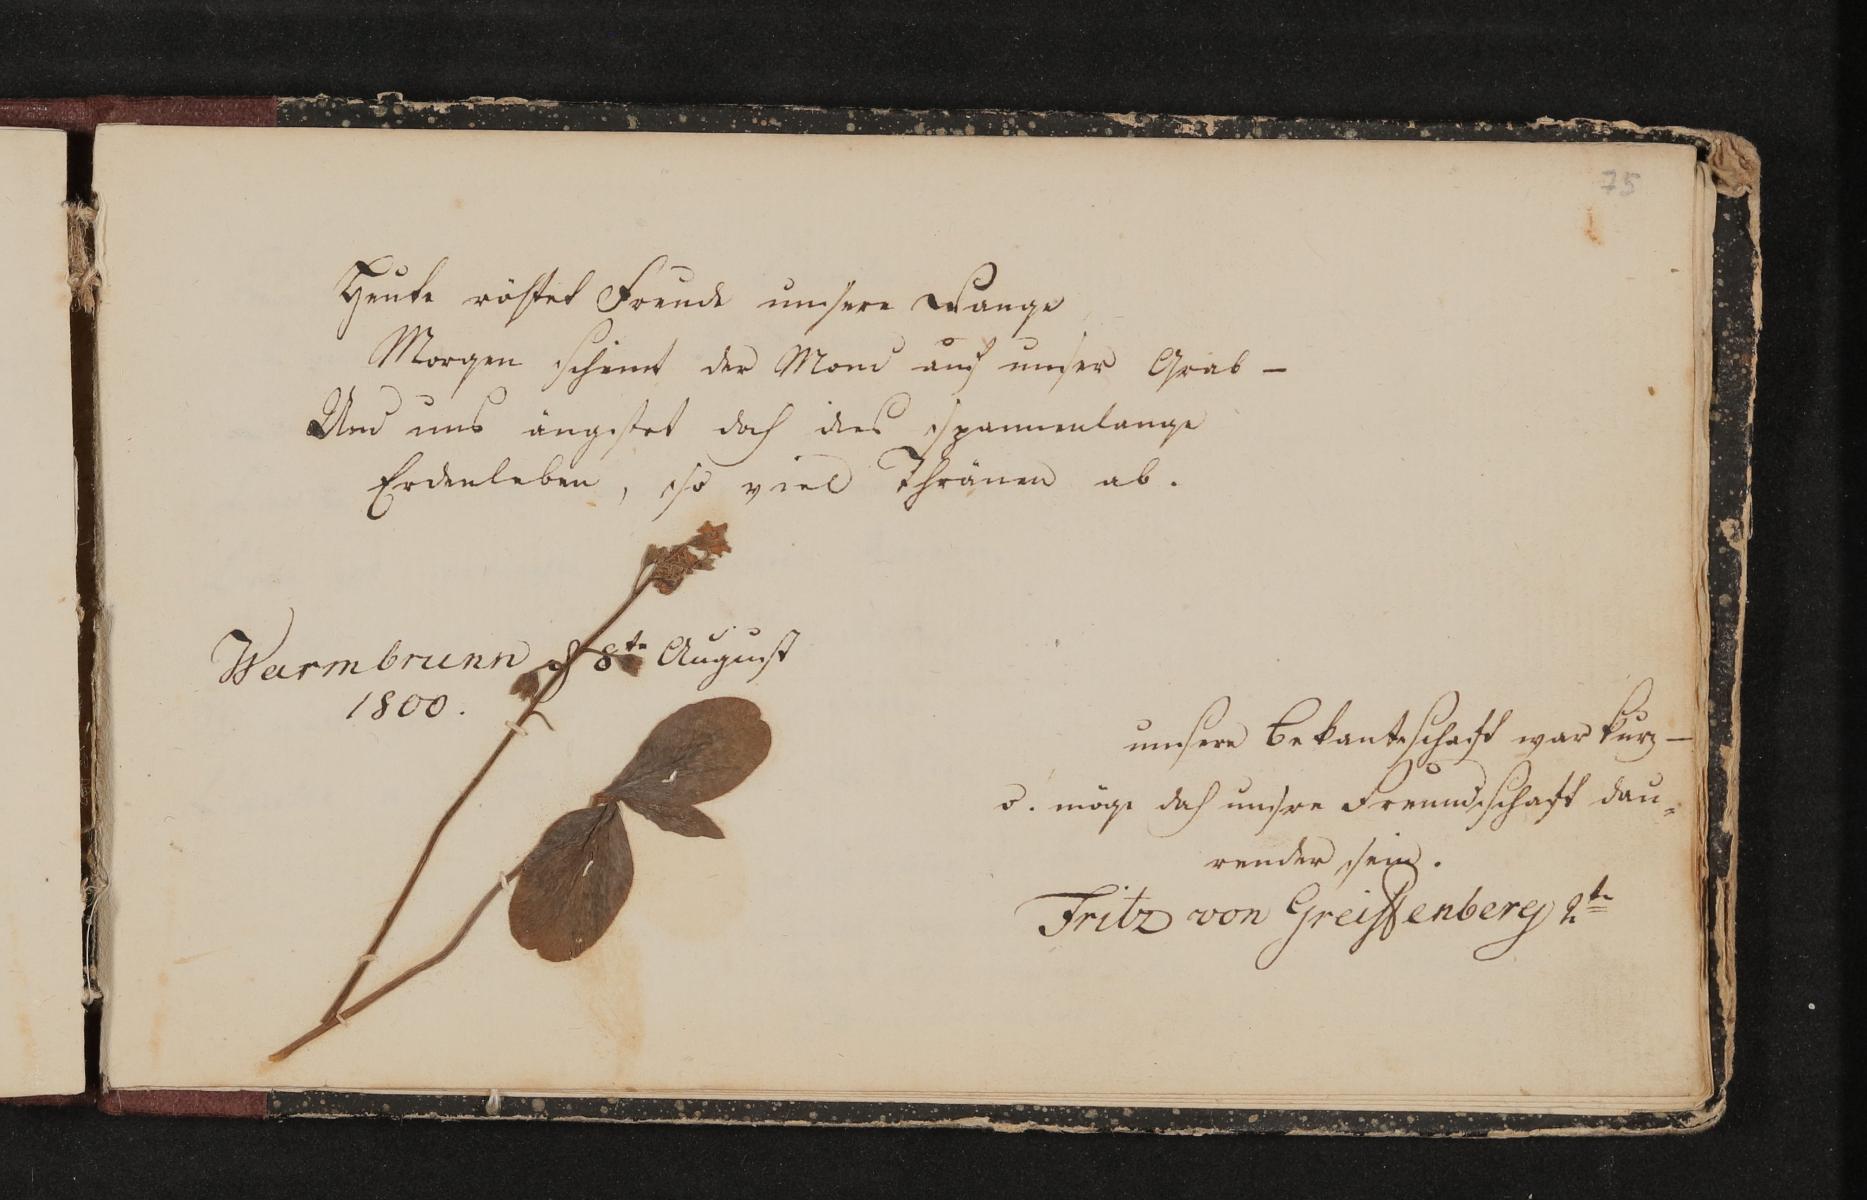 75
Heute röthet Freude unsere Wange
Morgen scheint der Mond auf unser Grab –
Und uns ängstet doch dies spannenlange
Erdenleben, so viel Thränen ab.
Warmbrunn d 8te August
1800.
unsere Bekantschaft war kurz –
o. möge doch unsre Freundschaft dau=
render sein.
Fritz von Greiffenberg 2te